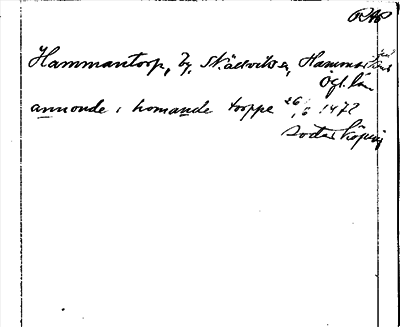 RAp
Hammantorp, by, Skällviks sn, Hammar-
kinds
Ögl. län
annonde i homande torppe 26/6 1472
Söderköping